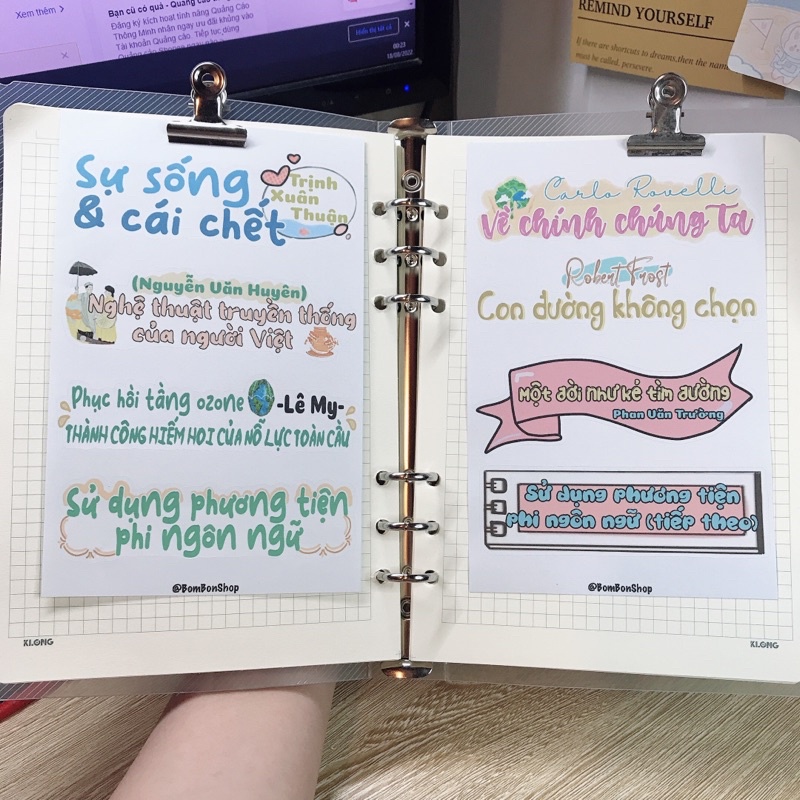 Bạn cũ có quà - Quảng Cáo
Đăng ký kích hoạt tính năng Quảng Cáo
Thông Minh nhận ngay ưu đãi khủng vào
Tài khoản Quảng cáo. Tiếp tục dùng
Hiển thị tất cả
00:23
REMIND YOURSELF
If there are shortcuts to dreams,then the name
must be called, persevere.
Sự sống
& cái chết
Trịnh
Xuân
Thuận
(Nguyễn Văn Huyên)
Nghệ thuật truyền thống
của người Việt
Phục hồi tầng ozone -Lê My-
THÀNH CÔNG HIẾM HOI CỦA NỖ LỰC TOÀN CẦU
Sử dụng phương tiện
phi ngôn ngữ
@BomBonShop
KLONG
Carlo Rovelli
Về chính chúng Ta
Robert Frost
Con đường không chọn
Một đời như kẻ tìm đường
Phan Văn Trường
Sử dụng phương tiện
phi ngôn ngữ (tiếp theo)
@BomBonShop
KLONG